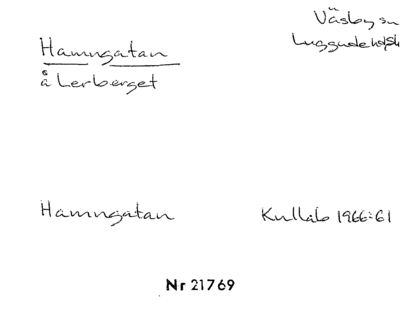 Hamngatan
å Lerberget
Väsby sn
Luggude hd
Hamngatan
Kullab 1966:61
Nr 21769